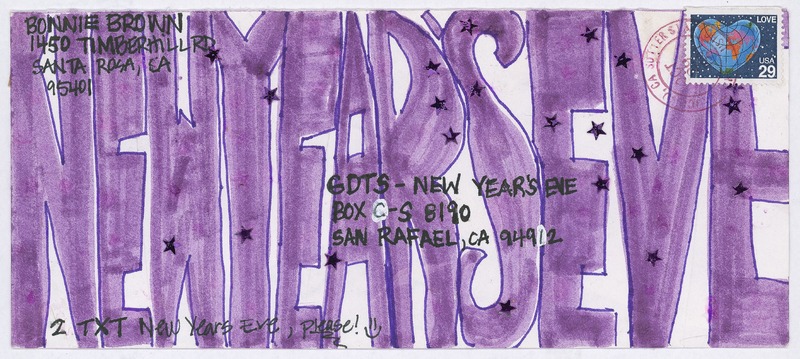 BONNIE BROWN
1450 TIMBERMILL RD
SANTA ROSA, CA
95401
NEW YEARS EVE
LOVE
USA
29
GDTS - NEW YEAR'S EVE
BOX C-S 8190
SAN RAFAEL, CA 94912
2 TXT New Years Eve, please!